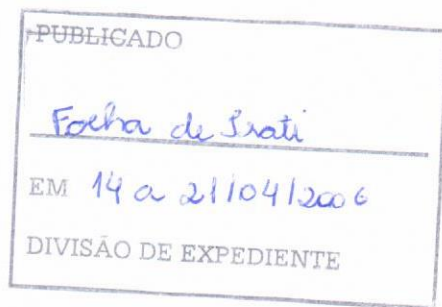 PUBLICADO
Folha de Irati
EM 14 a 21/04/2006
DIVISÃO DE EXPEDIENTE